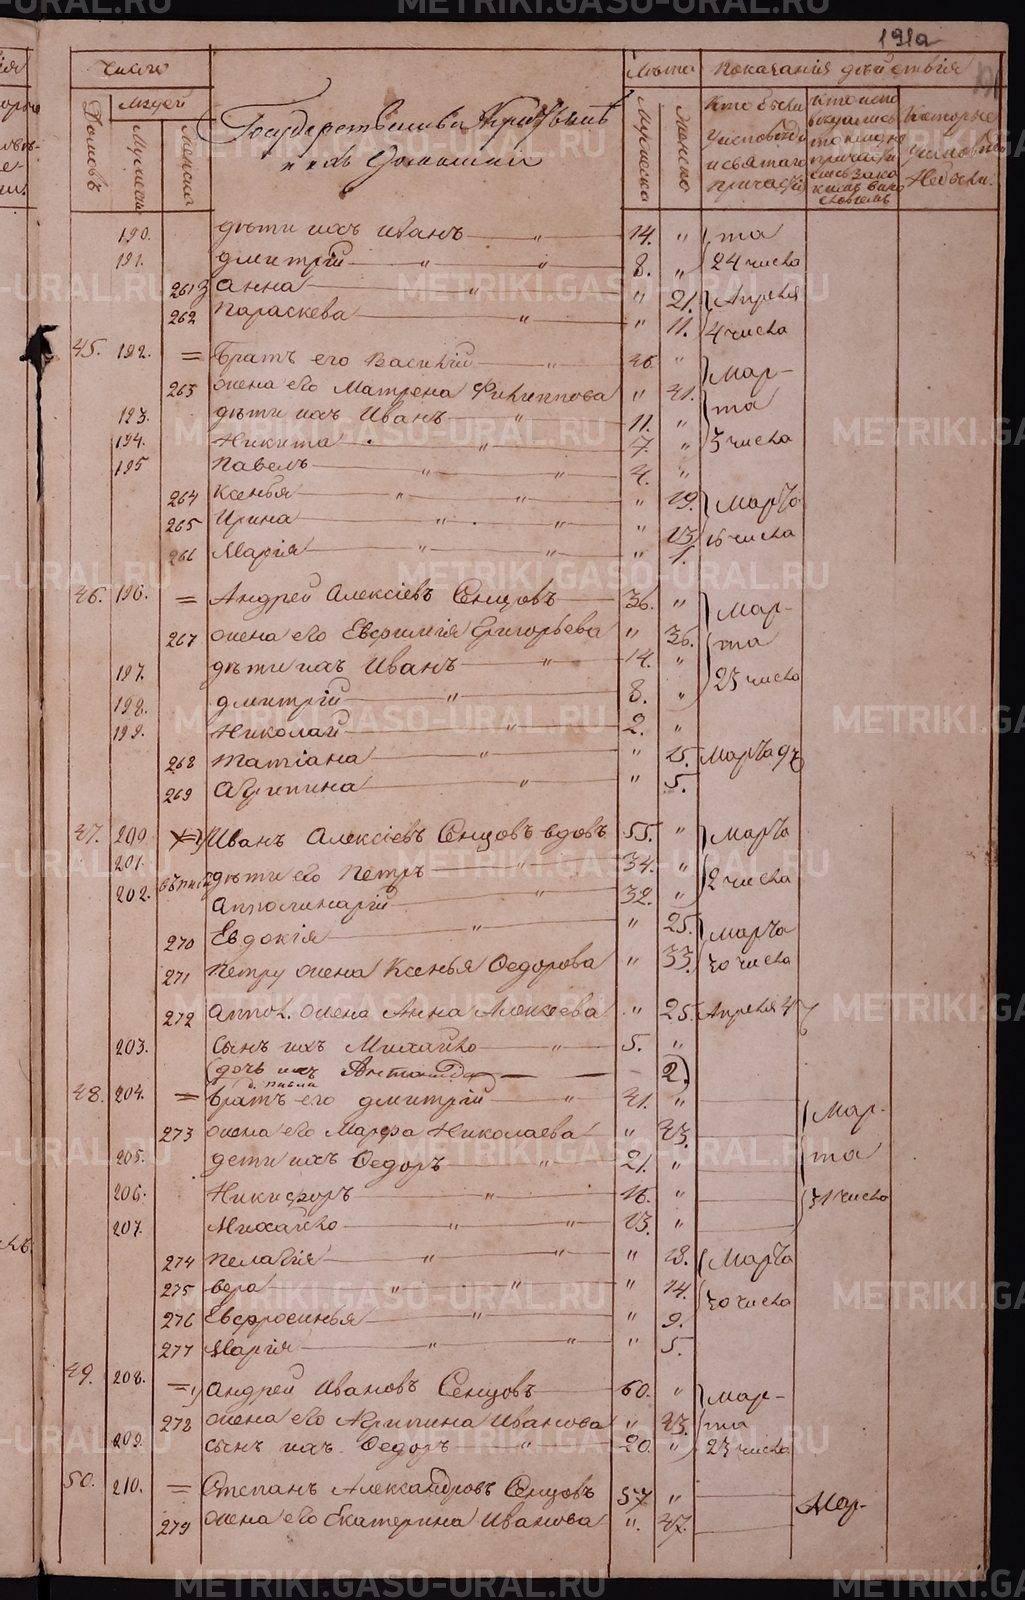 191а
Число
Лѣта Показанія дѣйствія
Домовъ Людей Мужеска Женска
Государственныи Крестьянѣ
и ихъ домашніи
Мужеска Женско
Кто были у исповеди и святаго причастія
Которые у исповеди не были.
190. дѣти ихъ Иванъ — " 14. " та
191. Дмитрій — " — " 8. " 24 числа
261 Анна — " " 21. Апреля
262 Параскева — " " 11. 4 числа
45. 192. = Братъ его Василій — " "
263 жена его Матрена Филиппова " 41. Мар-
193. дѣти ихъ Иванъ — " 11. " та
194. Никита — " 7. " 3 числа
195 Павелъ — " — " 4. "
264 Ксенья — " — " " 19. Марта
265 Ирина — " — " " 13. 16 числа
266 Марія — " — " " 1.
46. 196. = Андрей Алексіевъ Сенцовъ — 36. " Мар-
267 жена его Евфимія Григорьева " 36. та
197. дѣти ихъ Иванъ — " 14. " 25 числа
198. Дмитрій — " 8. "
199. Николай — " 2. "
268 Татіана — " " 15. Марта
269 Агрипина — " " 5.
47. 200. Иванъ Алексіевъ Сенцовъ вдовъ 55. " Марта
201. дѣти его Петръ — " 34. " 2 числа
202. Апполинарій — " 32. "
270 Евдокія — " " 25. Марта
271 Петру жена Ксенья Федорова " 33. 30 числа
272 Аппол. жена Анна Алексеева " 25. Апреля 4
203. сынъ ихъ Михайло — " 5. "
(дочь ихъ — — 2)
48. 204. = Братъ его Дмитрій — " 41. " Мар-
273 жена его Марфа Николаева " 43. та
205. дети ихъ Федоръ — " 21. " 31 числа
206. Никифоръ — " 16. "
207. Михайло — " — " 13. "
274 Пелагія — " " 18. Марта
275 Вера — " — " " 14. 30 числа
276 Евфросинья — " " 9.
277 Марія — " — " " 5.
49. 208. Андрей Ивановъ Сенцовъ — 60. " Мар-
278 жена его Агрипина Иванова " 43. та
209. сынъ ихъ Федоръ — " 20. " 23 числа
50. 210. = Степанъ Александровъ Сенцовъ 57 " Мар-
279 жена его Екатерина Иванова " 47.
METRIKI.GASO-URAL.RU